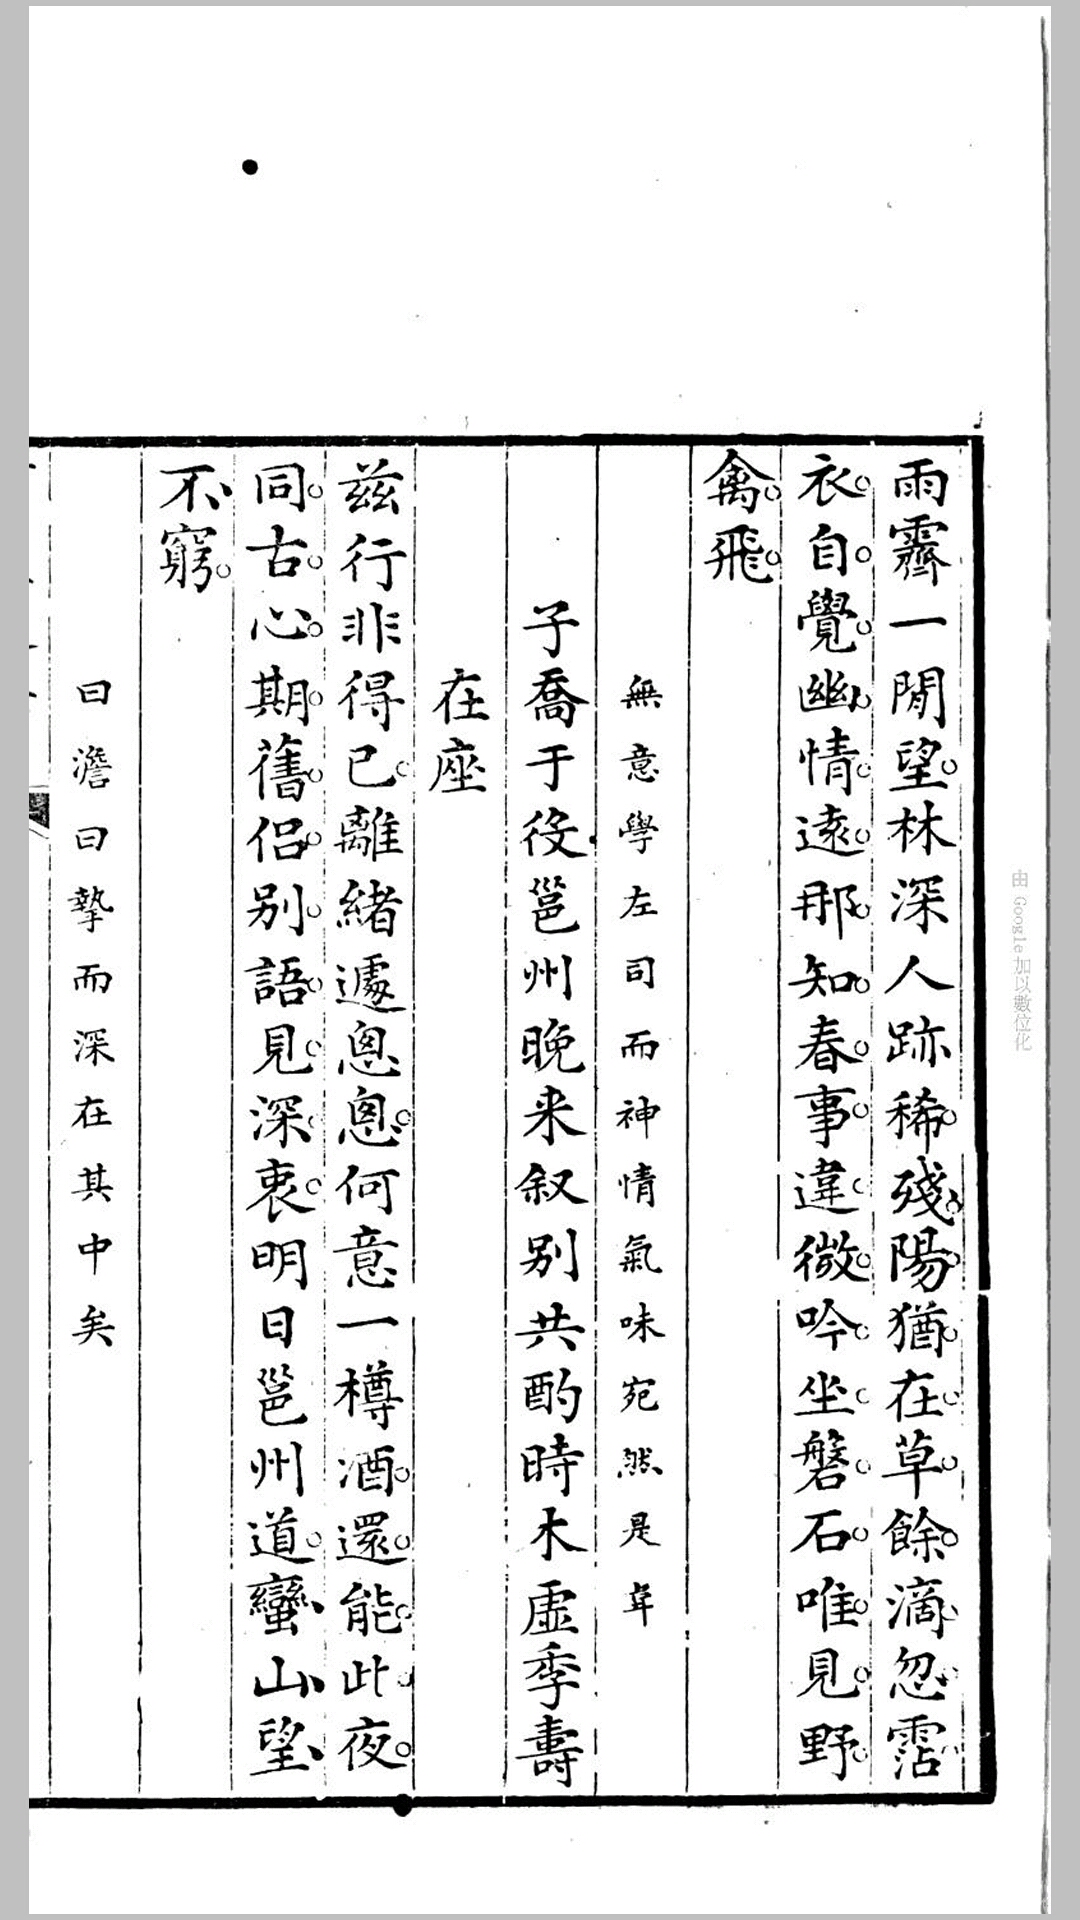 雨霽一閒望林深人跡稀殘陽猶在草餘滴忽霑
衣自覺幽情遠那知春事違微吟坐磐石唯見野
禽飛
無意學左司而神情氣味宛然是韋
子喬于役邕州晚来叙别共酌時木虛季壽
在座
茲行非得已離緒遽悤悤何意一樽酒還能此夜
同古心期舊侣别語見深衷明日邕州道蠻山望
不窮
曰澹曰摯而深在其中矣
由 Google 加以數位化